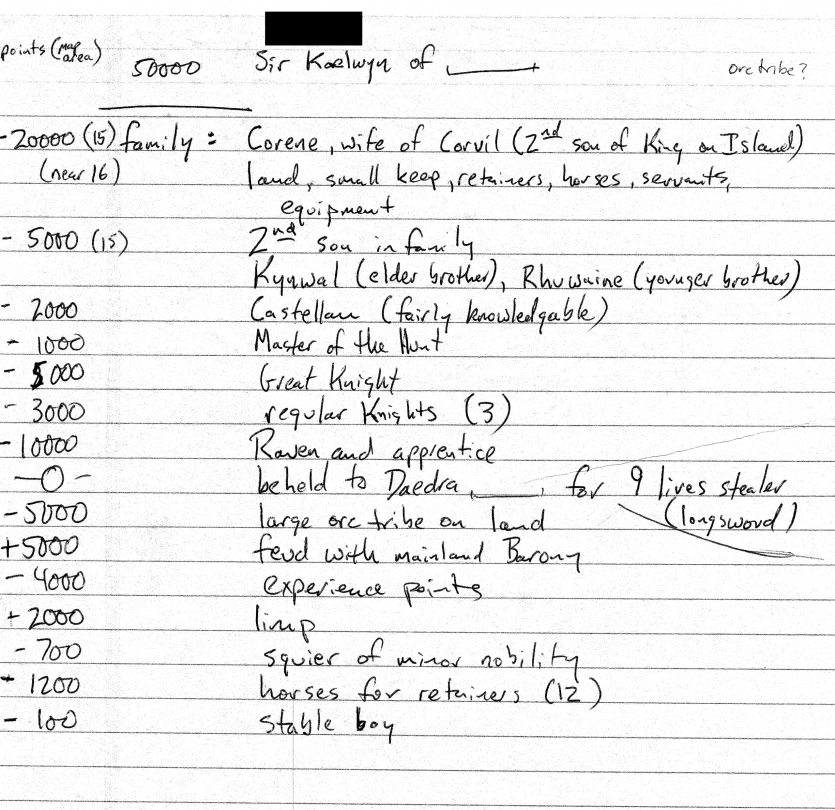 points (map area) 50000 Sir Kaelwyn of ______ orc tribe?
-20000 (15) family: Corene, wife of Corvil (2nd son of King on Island)
(near 16) land, small keep, retainers, horses, servants,
equipment
- 5000 (15) 2nd son in family
Kynwal (elder brother), Rhuwaine (younger brother)
- 2000 Castellan (fairly knowledgable)
- 1000 Master of the Hunt
- 5000 Great Knight
- 3000 regular Knights (3)
- 10000 Raven and apprentice
-0- beheld to Daedra ______, for 9 lives stealer
(longsword)
- 5000 large orc tribe on land
+5000 feud with mainland Barony
- 4000 experience points
+ 2000 limp
- 700 squier of minor nobility
- 1200 horses for retainers (12)
- 100 stable boy